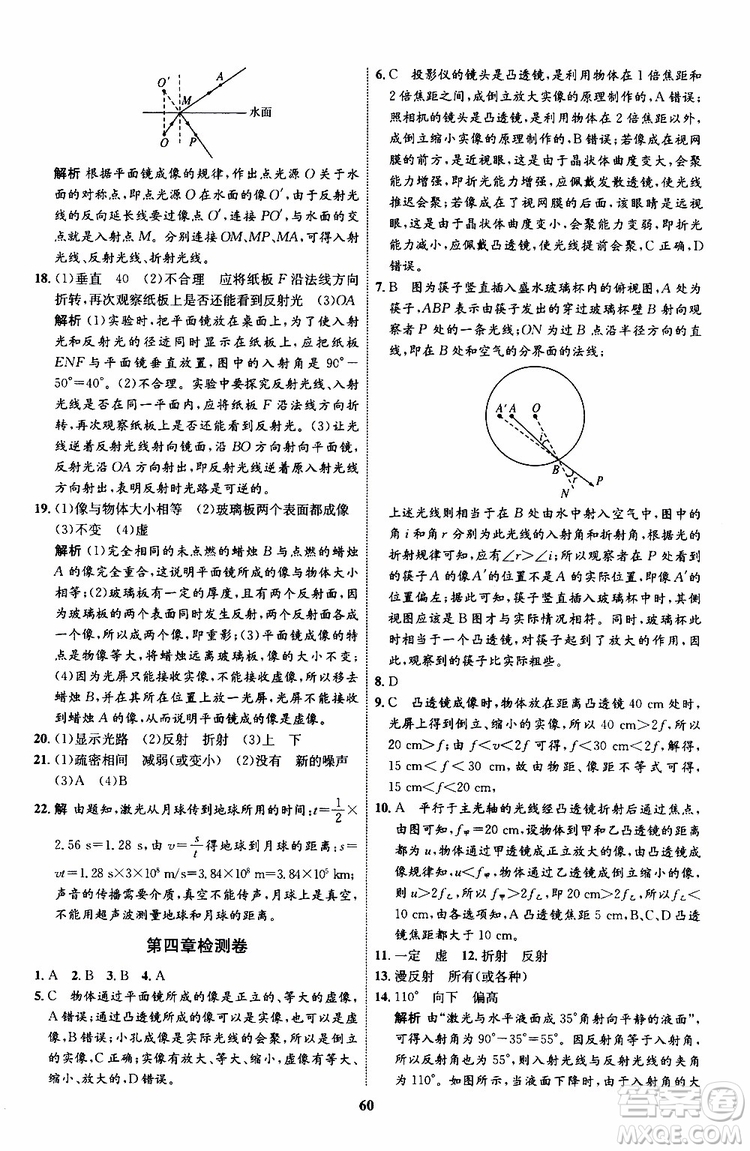 O′
A
M
水面
O
P
解析 根据平面镜成像的规律,作出点光源 O 关于水
面的对称点,即点光源 O 在水面的像 O′,由于反射光
线的反向延长线要过像点,连接 PO′,与界面的
交点就是入射点 M。分别连接 OM、MP、MA,可得入射
光线、反射光线、折射光线。
18. (1)垂直 40 (2)不合理 应将纸板 F 沿法线方向
折转,再次观察纸板上是否有反射光 (3)OA
解析 (1)实验时,把平面镜放在桌面上,为了使入射
光和反射光的径迹同时显示在纸板上,应把纸板
ENF 与平面镜垂直放置,图中的入射角等于 90°-
50°=40°。(2)不合理。实验中要探究反射光线、入射
光线是否在同一平面内,应将纸板 F 沿法线方向折
转,再次观察纸板上是否有反射光线。(3)让光
线沿着反射光线射向镜面,沿 BO 方向射向平面镜,
反射光沿 OA 方向射出,即反射光线沿原入射光线方
向射出,表明反射时光路是可逆的。
19. (1)像与物体大小相等 (2)玻璃板两个表面都成像
(3)不变 (4)虚
解析 (1)完全相同的未点燃的蜡烛 B 与点燃的蜡烛
A 的像完全重合,这说明平面镜成的像与物体大小
相等;(2)玻璃板有一定的厚度,有两个反射面,蜡烛
在玻璃板的两个表面同时发生反射,两个反射面各
成一个像,即重影;(3)由于平面镜成像的特
点是物像等大,将蜡烛远离玻璃板,像的大小不变;
(4)实像能被光屏接收,不能接收虚像,因此将光屏
放置在蜡烛 B,并移去蜡烛 B,发现光屏不能接收
到蜡烛 A 的像,这说明平面镜成的像是虚像。
20. (1)显示光路 (2)反射 折射 (3)上 下
21. (1)疏密相间 减弱(或变小) (2)没有 新的噪声
(3)A (4)B
22. 解 由题知,激光从月球传到地球所用的时间:t=1/2×
2.56 s=1.28 s,由 v=s/t得地球到月球的距离:s=
vt=1.28 s×3×10⁸ m/s=3.84×10⁸ m=3.84×10⁵km;
声音的传播需要介质,真空不能传声,月球上是真空,
不能用超声波测量地球和月球的距离。
第四章检测卷
1. A 2. B 3. B 4. A
5. C 物体通过平面镜所成的像是正立的、等大的虚像,
A 错误;放大镜成的是正立、放大的虚像,B
错误;小孔成像是实际光线的会聚而成的像,是倒立
的实像,C 正确;汽车的后视镜所成的像是正立、
缩小、不等大的,D 错误。
6. C 投影仪的镜头是凸透镜,是利用物体在 1 倍焦距和
2 倍焦距之间,成倒立放大实像的原理制作的,A 错误;
照相机的镜头是凸透镜,是利用物体在 2 倍焦距以外
时,成倒立缩小实像的原理制作的,B 错误;近视眼将
远处某点射入的光线会聚于视网
膜的前方是由于晶状体曲度变大,会聚
能力增强,折光能力增强,应佩戴发散透镜,使光线
推迟会聚,成像于视网膜的后面,该眼睛是远视
眼,是由于晶状体曲度变小,会聚能力变弱,即折光
能力减小,应佩戴凸透镜,使光线提前会聚,C 正确,D
错误。
7. B 图为筷子竖直插入盛水玻璃杯内的俯视图,A 处为
筷子,ABP 表示由筷子发出的穿过玻璃杯壁 B 射向观
察者 P 处的一条光线;ON 为过 B 点沿半径方向的直
线,即在 B 处水和空气的分界面的法线;
A′ A O
i
B
r
N P
上述光线则相当于在 B 处由水中射入空气中,图中的
角 i 和角 r 分别为此光线的入射角和折射角,根据光的
折射规律可知,应有∠r>∠i,所以观察者在 P 处看到
的筷子 A 的像 A′的位置不在 A 的实际位置,而是由实
际位置偏左;此时筷子竖直插入玻璃杯内,且偏左,由
俯视图 B 图才与实际情况相符。同时,玻璃杯
此时相当于一个凸透镜,对筷子起到了放大的作用,因
此,观察到的筷子比实际粗些。
8. D
9. C 凸透镜成像时,放在距离凸透镜 40 cm 处时,
光屏上得到倒立、缩小的实像,所以 40 cm>2f,f<
20 cm;f<v<2f,所以 f<15 cm<2f,解得
15 cm>f>7.5 cm,所以
15 cm<f<20 cm。
10. A 平行于主光轴的光线经凸透镜折射后通过焦点,
由图可知,f甲=20 cm。设物体到凸透镜的距离即物
距为 u,所以,甲图中通过甲透镜,成正立放大的虚像,
根据规律可知,u<f甲;图中通过乙透镜,成倒立缩小的实
像,所以,u>2f乙,所以,f甲>2f乙,即 f乙<10 cm。结
合各选项知,A 选项中的乙凸透镜焦距 5 cm 可能是
正确的,B、C、D 选项中的乙凸透镜焦距都不可能。
11. 一定 虚 12. 折射 反射
13. 漫反射 所有(或各种)
14. 110° 向下 偏高
解析 由“激光与水平液面成 35°角射向平静的液面”,可知
入射角为 55°,则入射光线与反射光线的夹
角为 110°。如图所示,当液面下降时,由于入射角的大
60
答案圈
MXQE.COM